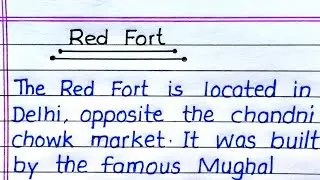 Red Fort
The Red Fort is located in
Delhi, opposite the chandni
chowk market. It was built
by the famous Mughal